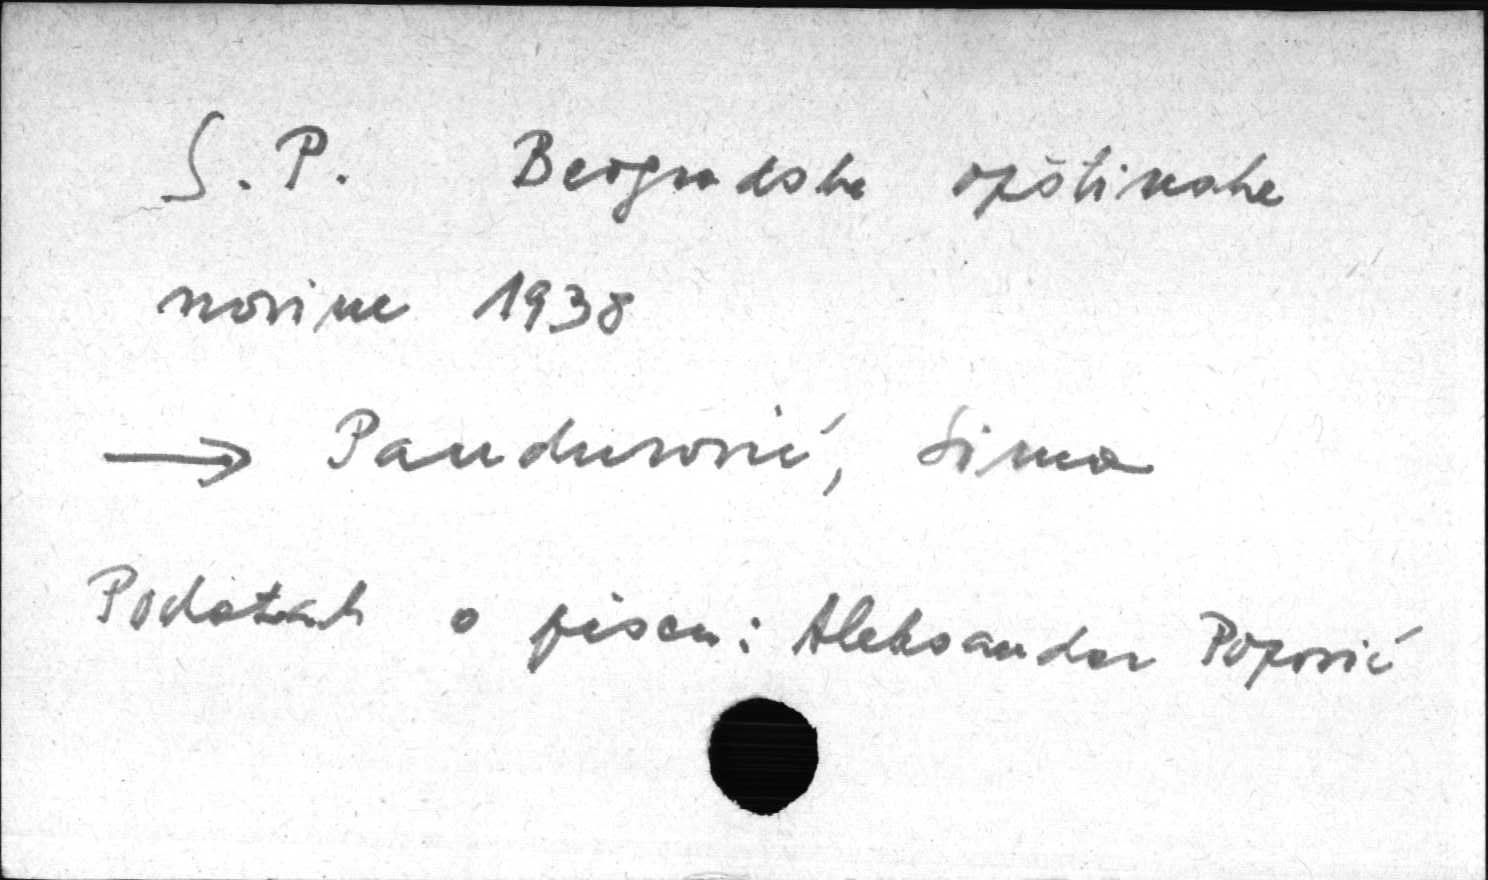 S. P. Beogradske opštinske
novine 1938
→ Pandurović, Sima
Podatak o piscu: Aleksandar Popović